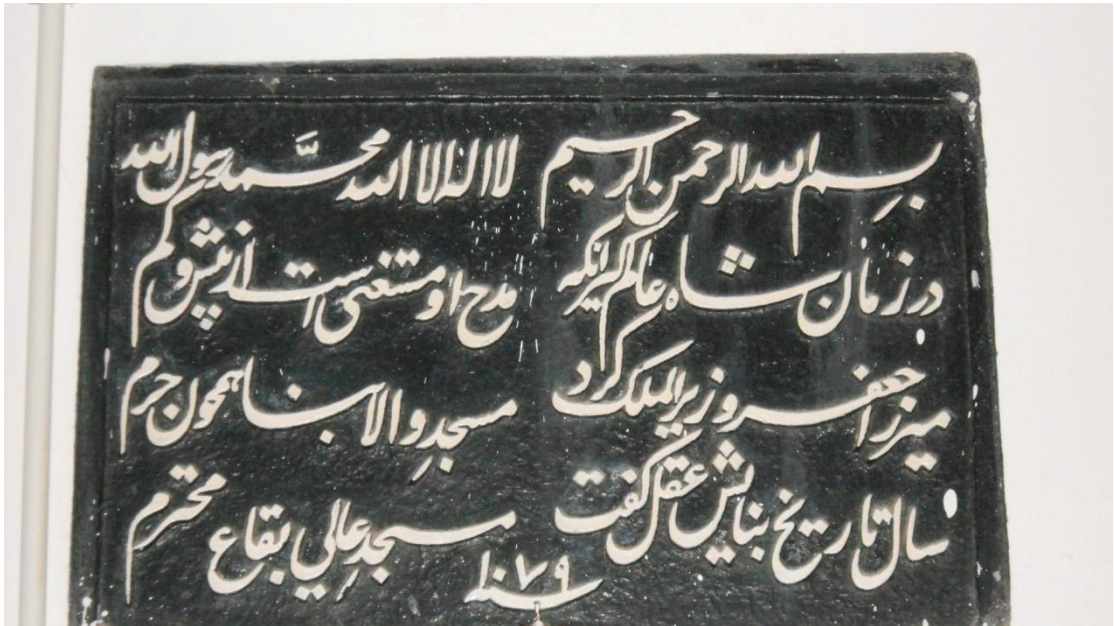 بِسم الله الرحمن الرحیم لا اله الا الله محمَّد رسول الله
در زمان شاه عالمکیر انکه مدح او مستغنی است از بیش و کم
میرزا جعفر وزیر الملک کرد مسجدِ والا بنا همچون حرم
سال تاریخ بنایش عقل کفت مسجدِ عالي بقاع محترم
سنه ۱۰۷۹